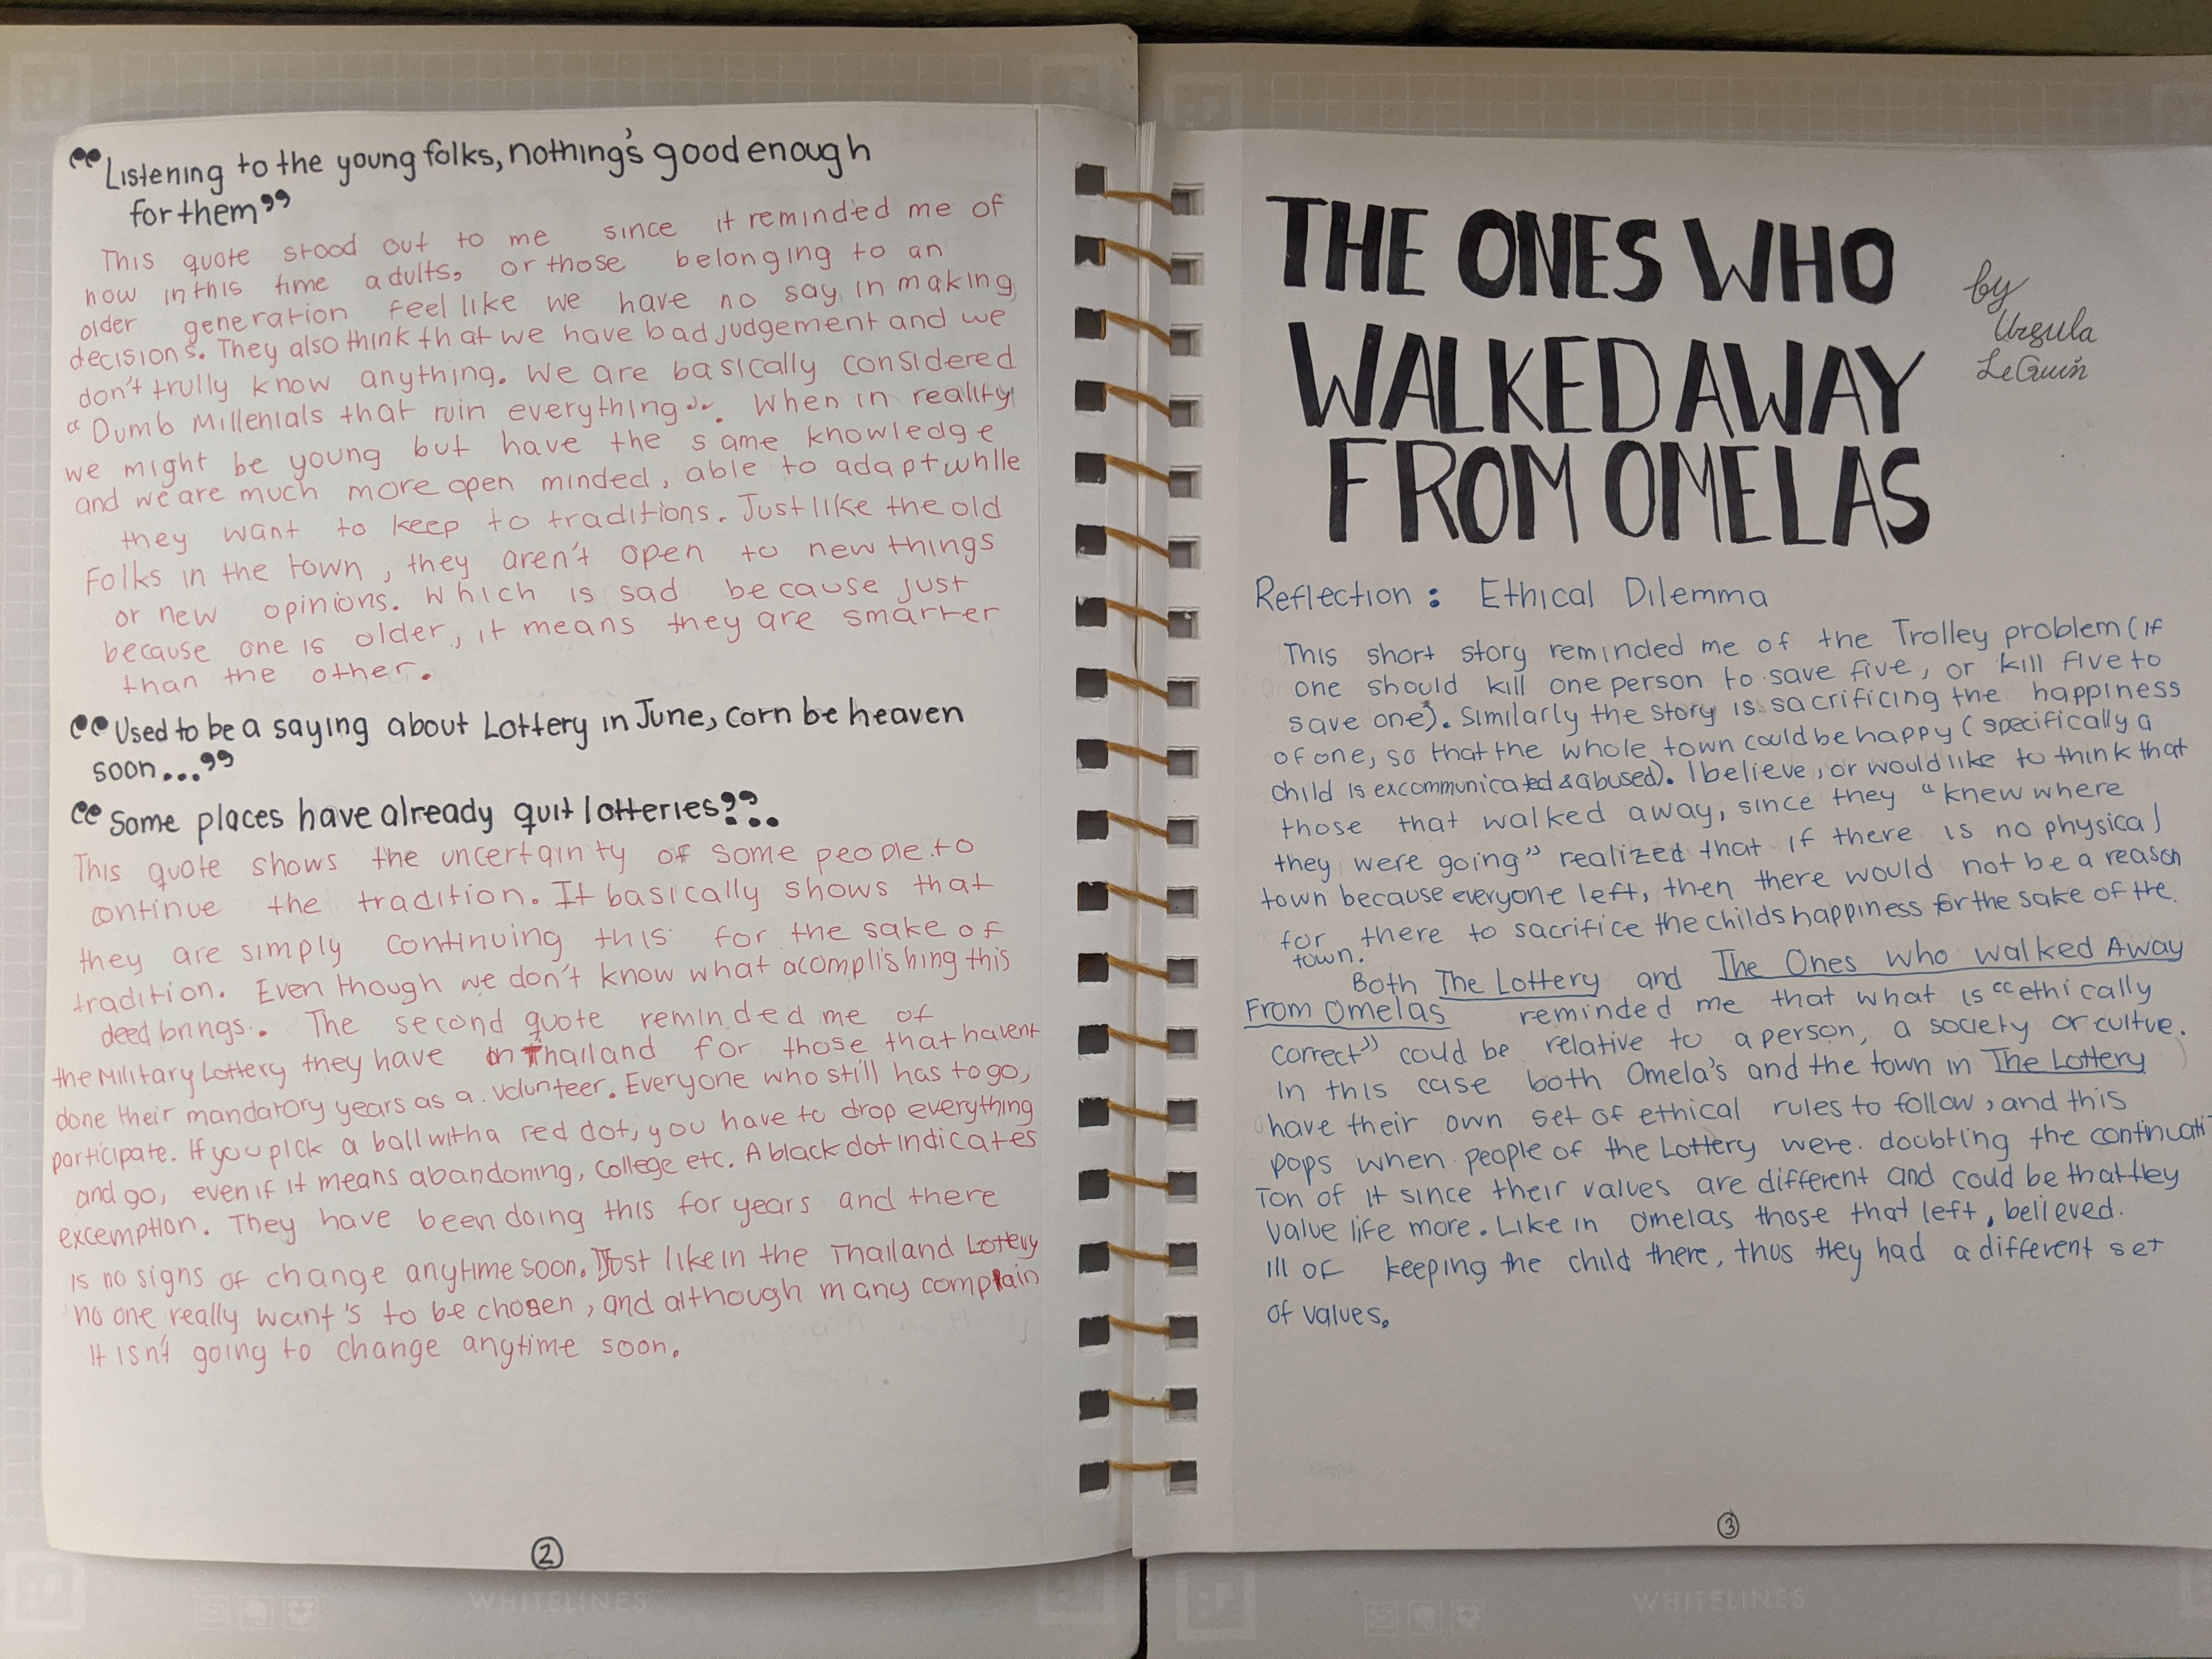 “Listening to the young folks, nothing's good enough
for them”
This quote stood out to me since it reminded me of
how in this time adults, or those belonging to an
older generation feel like we have no say in making
decisions. They also think that we have bad judgement and we
don't trully know anything. We are basically considered
“Dumb Millenials that ruin everything”. When in reality
we might be young but have the same knowledge
and we are much more open minded, able to adapt while
they want to keep to traditions. Just like the old
Folks in the town, they aren't open to new things
or new opinions. Which is sad because just
because one is older, it means they are smarter
than the other.
“Used to be a saying about Lottery in June, corn be heaven
soon...”
“Some places have already quit lotteries”.
This quote shows the uncertainty of some people to
continue the tradition. It basically shows that
they are simply continuing this for the sake of
tradition. Even though we don't know what acomplishing this
deed brings. The second quote reminded me of
the Military Lottery they have in Thailand for those that havent
done their mandatory years as a volunteer. Everyone who still has to go,
participate. If you pick a ball with a red dot, you have to drop everything
and go, even if it means abandoning, college etc. A black dot indicates
excemption. They have been doing this for years and there
is no signs of change anytime soon. Just like in the Thailand Lottery
no one really want's to be chosen, and although many complain
it isn't going to change anytime soon.
2
THE ONES WHO
WALKED AWAY
FROM OMELAS
by
Ursula
LeGuin
Reflection: Ethical Dilemma
This short story reminded me of the Trolley problem (if
one should kill one person to save five, or kill five to
save one). Similarly the story is sacrificing the happiness
of one, so that the whole town could be happy (specifically a
child is excommunicated & abused). I believe, or would like to think that
those that walked away, since they “knew where
they were going” realized that if there is no physical
town because everyone left, then there would not be a reason
for there to sacrifice the childs happiness for the sake of the
town.
Both The Lottery and The Ones who walked Away
From Omelas reminded me that what is “ethically
correct” could be relative to a person, a society or cultue.
In this case both Omela's and the town in The Lottery
have their own set of ethical rules to follow, and this
pops when people of the Lottery were doubting the continuati
ton of it since their values are different and could be that they
value life more. Like in omelas those that left, believed
ill of keeping the child there, thus they had a different set
of values.
3
WHITELINES
WHITELINES